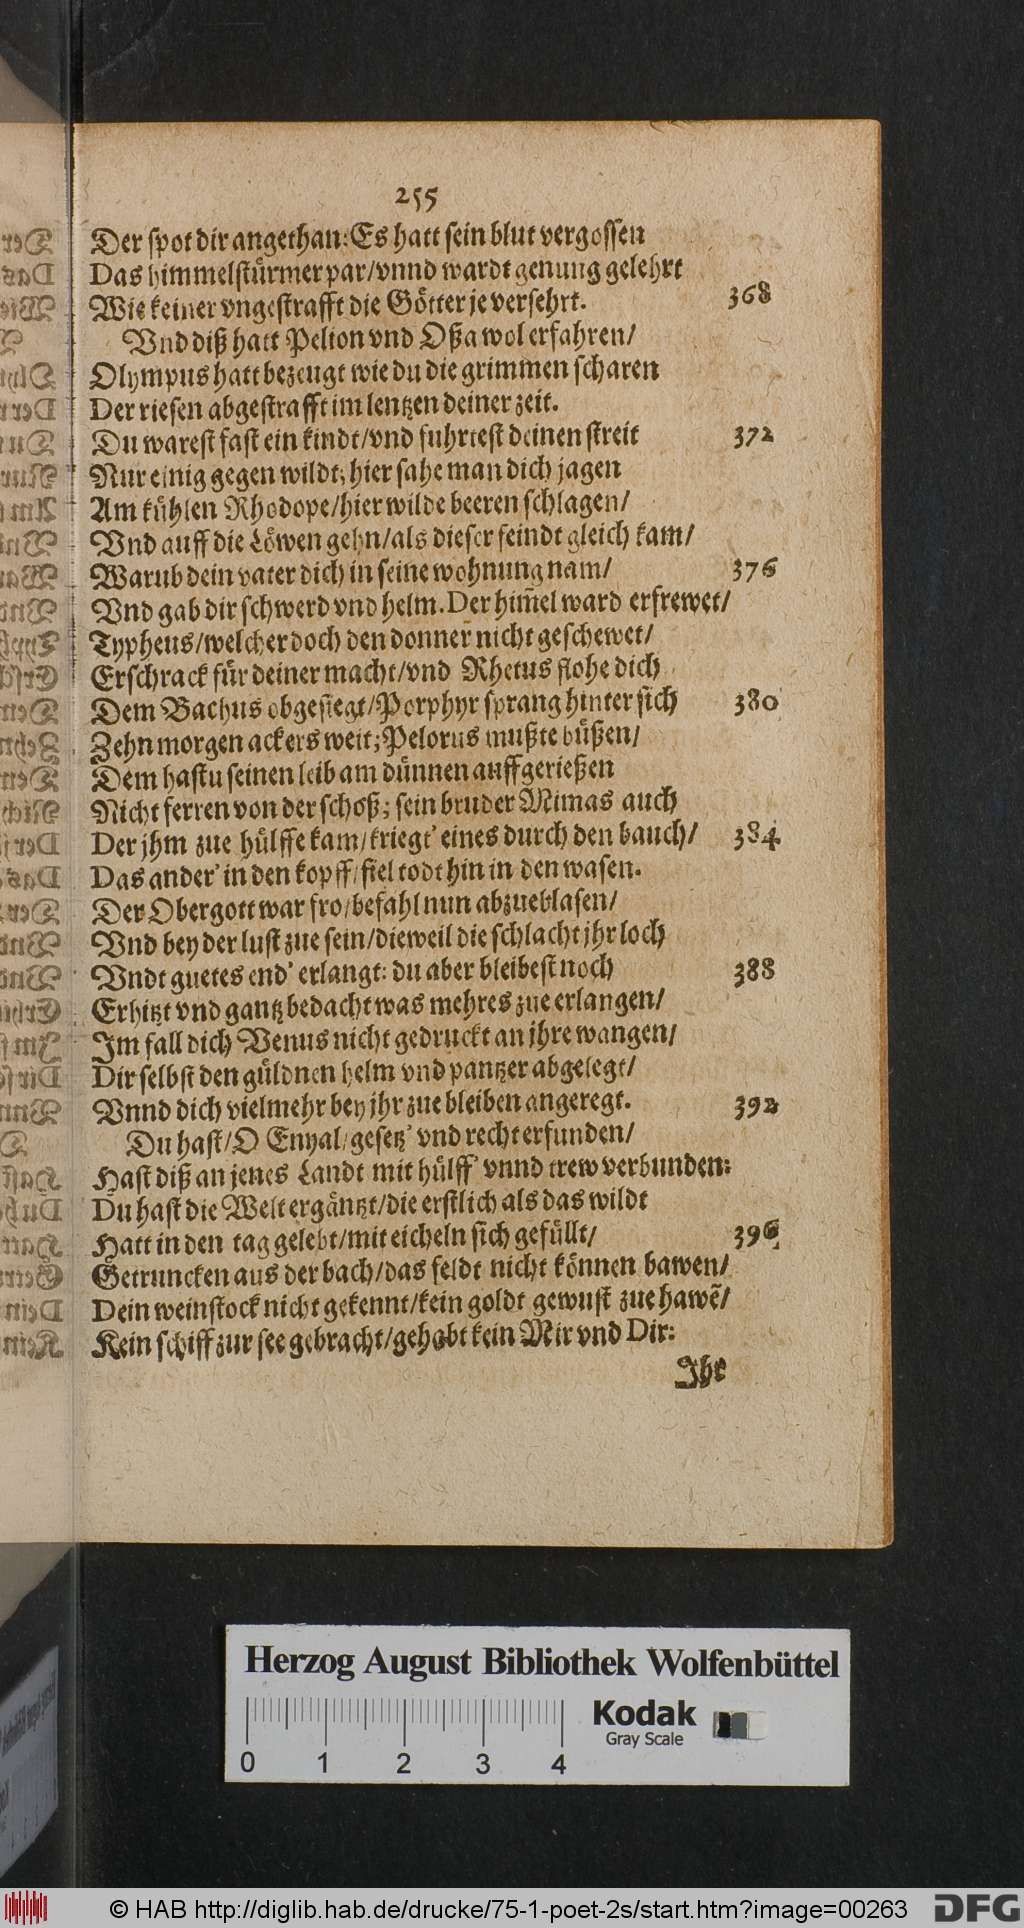 255
Der spot dir angethan: Es hatt sein blut vergossen
Das himmelstürmer par/vnnd wardt genung gelehrt
Wie keiner vngestrafft die Götter je versehrt. 368
Vnd diß hatt Pelion vnd Oßa wol erfahren/
Olympus hatt bezeugt wie du die grimmen scharen
Der riesen abgestrafft im lentzen deiner zeit.
Du warest fast ein kindt/vnd fuhrtest deinen streit 372
Nur einig gegen wildt; hier sahe man dich jagen
Am kühlen Rhodope/hier wilde beeren schlagen/
Vnd auff die Löwen gehn/als dieser feindt gleich kam/
Warub dein vater dich in seine wohnung nam/ 376
Vnd gab dir schwerd vnd helm. Der him̃el ward erfrewet/
Typheus/welcher doch den donner nicht geschewet/
Erschrack für deiner macht/vnd Rhetus flohe dich
Dem Bachus obgesiegt/Porphyr sprang hinter sich 380
Zehn morgen ackers weit; Pelorus mußte büßen/
Dem hastu seinen leib am dünnen auffgerießen
Nicht ferren von der schoß; sein bruder Mimas auch
Der jhm zue hülffe kam/kriegt' eines durch den bauch/ 384
Das ander' in den kopff/fiel todt hin in den wasen.
Der Obergott war fro/befahl nun abzueblasen/
Vnd bey der lust zue sein/dieweil die schlacht jhr loch
Vndt guetes end' erlangt: du aber bleibest noch 388
Erhitzt vnd gantz bedacht was mehres zue erlangen/
Im fall dich Venus nicht gedruckt an jhre wangen/
Dir selbst den güldnen helm vnd pantzer abgelegt/
Vnnd dich vielmehr bey jhr zue bleiben angeregt. 392
Du hast/O Enyal/gesetz' vnd recht erfunden/
Hast diß an jenes Landt mit hülff' vnnd trew verbunden:
Du hast die Welt ergäntzt/die erstlich als das wildt
Hatt in den tag gelebt/mit eicheln sich gefüllt/ 396
Getruncken aus der bach/das feldt nicht können bawen/
Dein weinstock nicht gekennt/kein goldt gewust zue hawẽ/
Kein schiff zur see gebracht/gehabt kein Mir vnd Dir:
Ihr
Herzog August Bibliothek Wolfenbüttel
Kodak
Gray Scale
0 1 2 3 4
© HAB http://diglib.hab.de/drucke/75-1-poet-2s/start.htm?image=00263
DFG